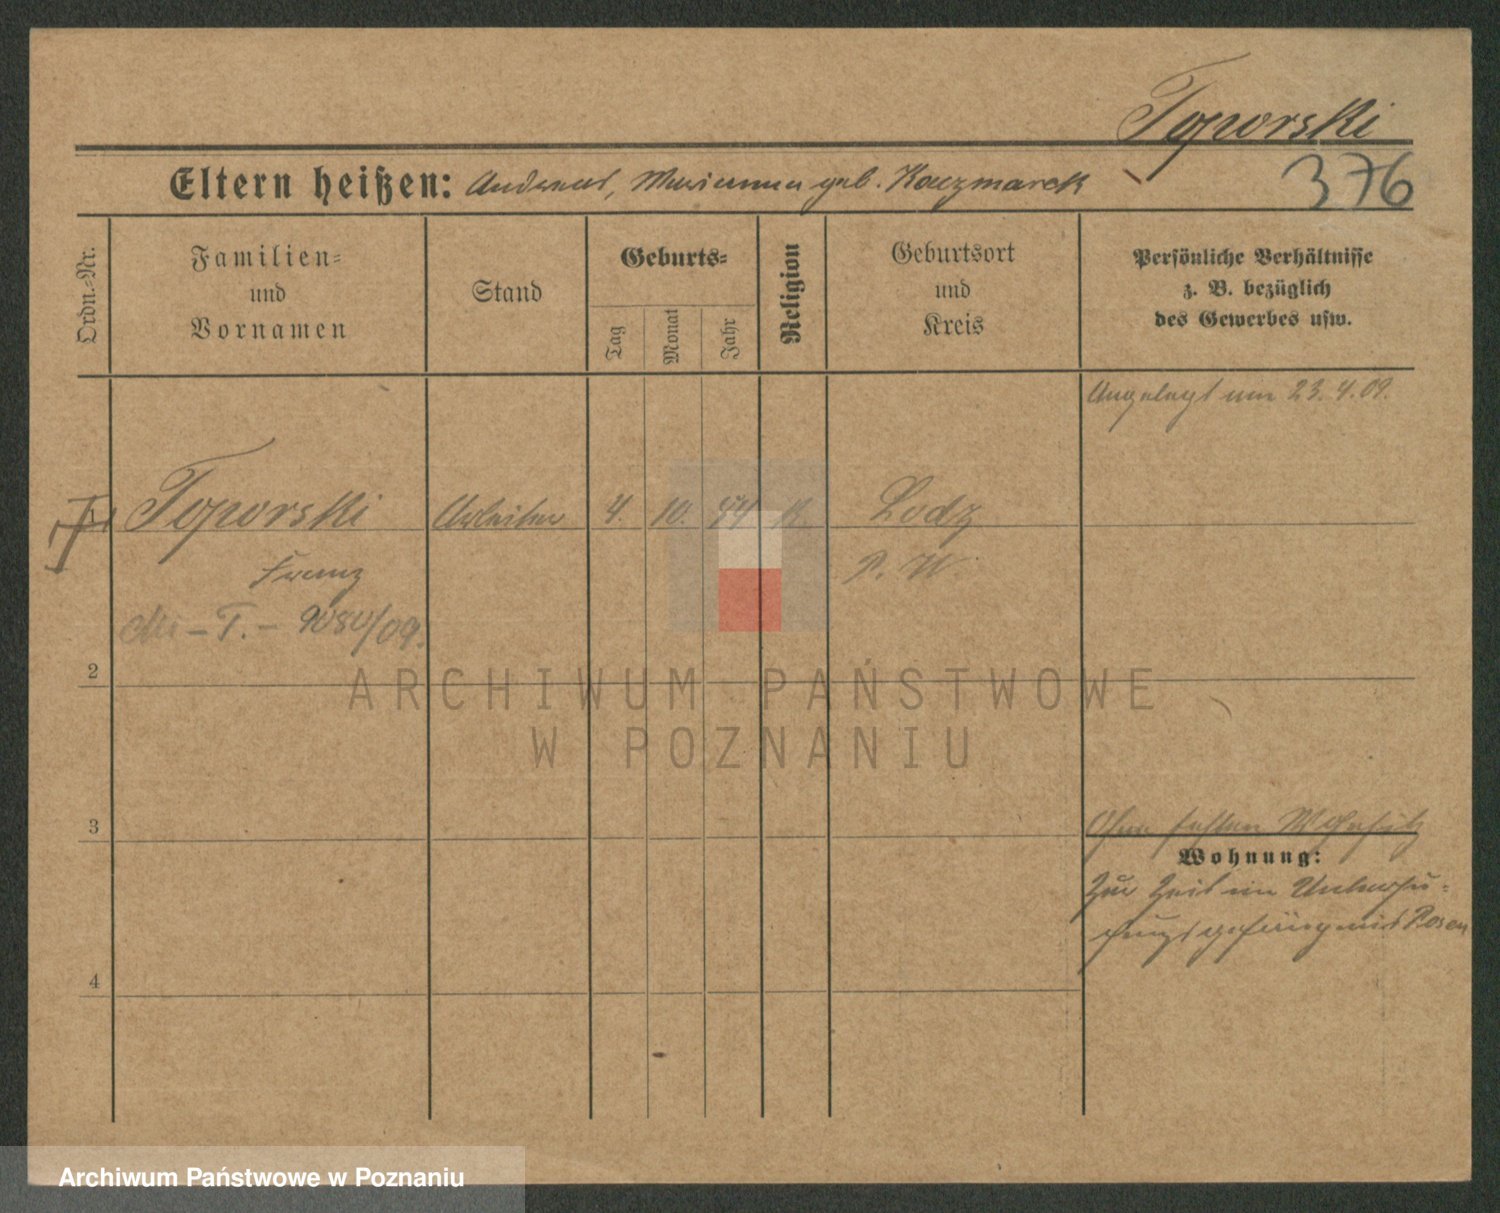 Toporski
376
Eltern heißen: Andreas, Marianna geb. Kaczmarek
Ordn.-Nr.
Familien-
und
Vornamen
Stand
Geburts-
Tag
Monat
Jahr
Religion
Geburtsort
und
Kreis
Persönliche Verhältnisse
z. B. bezüglich
des Gewerbes usw.
Angelegt am 23.4.09.
Toporski Arbeiter 4. 10. 44 k Lodz
Franz R. W.
T. - 9080/09.
2
3
Ohne festen Wohnsitz
Wohnung:
Zur Zeit im Untersu-
chungsgefängnis Posen
4
ARCHIWUM PAŃSTWOWE
W POZNANIU
Archiwum Państwowe w Poznaniu